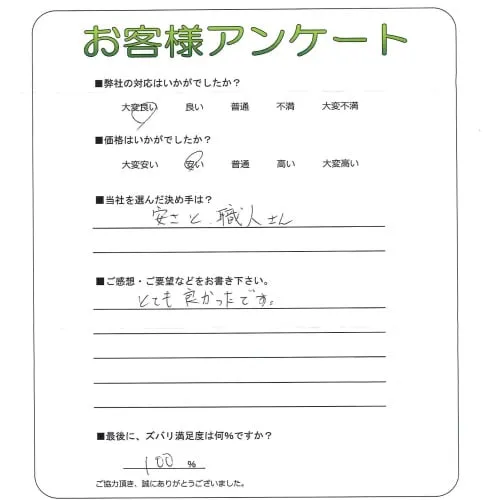 お客様アンケート
■弊社の対応はいかがでしたか？
大変良い 良い 普通 不満 大変不満
■価格はいかがでしたか？
大変安い 安い 普通 高い 大変高い
■当社を選んだ決め手は？
安さと、職人さん
■ご感想・ご要望などをお書き下さい。
とても良かったです。
■最後に、ズバリ満足度は何％ですか？
100 ％
ご協力頂き、誠にありがとうございました。